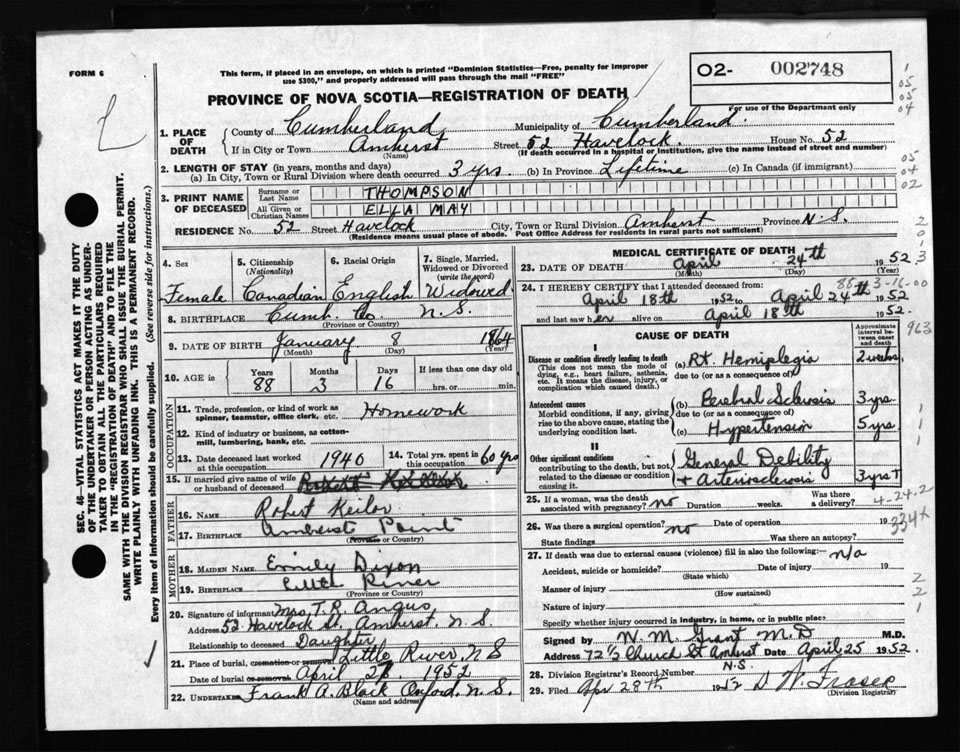 FORM 6
This form, if placed in an envelope, on which is printed "Dominion Statistics—Free, penalty for improper
use $300," and properly addressed will pass through the mail "FREE"
02- 002748
For use of the Department only
PROVINCE OF NOVA SCOTIA—REGISTRATION OF DEATH
1. PLACE OF DEATH
County of Cumberland Municipality of Cumberland
If in City or Town Amherst Street 52 Havelock House No. 52
(Name) (If death occurred in a hospital or institution, give the name instead of street and number)
2. LENGTH OF STAY (in years, months and days)
(a) In City, Town or Rural Division where death occurred 3 yrs. (b) In Province Lifetime (c) In Canada (if immigrant)
3. PRINT NAME OF DECEASED
Surname or Last Name THOMPSON
All Given or Christian Names ELLA MAY
RESIDENCE No. 52 Street Havelock City, Town or Rural Division Amherst Province N.S.
(Residence means usual place of abode. Post Office Address for residents in rural parts not sufficient)
4. Sex Female
5. Citizenship (Nationality) Canadian
6. Racial Origin English
7. Single, Married, Widowed or Divorced (write the word) Widowed
8. BIRTHPLACE Cumb. Co. N.S.
(Province or Country)
9. DATE OF BIRTH January 8 1864
(Month) (Day) (Year)
10. AGE in Years Months Days If less than one day
88 3 16 hrs. or min.
OCCUPATION
11. Trade, profession, or kind of work as spinner, teamster, office clerk, etc. Homework
12. Kind of industry or business, as cotton-mill, lumbering, bank, etc.
13. Date deceased last worked at this occupation 1940
14. Total yrs. spent in this occupation 60 yrs
15. If married give name of wife or husband of deceased
FATHER
16. Name Robert Keilor
17. Birthplace Amherst Point
(Province or Country)
MOTHER
18. MAIDEN NAME Emily Dixon
19. BIRTHPLACE Little River
(Province or Country)
20. Signature of informant Mrs. T. R. Angus
Address 52 Havelock St. Amherst, N.S.
Relationship to deceased Daughter
21. Place of burial, cremation or removal Little River, N S
Date of burial or removal April 1952
22. UNDERTAKER Frank A. Black Oxford, N.S.
(Name and address)
MEDICAL CERTIFICATE OF DEATH
23. DATE OF DEATH April 24th 1952
(Month) (Day) (Year)
24. I HEREBY CERTIFY that I attended deceased from:
April 18th 1952 to April 24th 1952
and last saw her alive on April 18th 1952.
CAUSE OF DEATH
Approximate interval between onset and death
I
Disease or condition directly leading to death
(This does not mean the mode of dying, e.g., heart failure, asthenia, etc. It means the disease, injury, or complication which caused death.)
(a) Rt. Hemiplegia 2 weeks
due to (or as a consequence of)
Antecedent causes
Morbid conditions, if any, giving rise to the above cause, stating the underlying condition last.
(b) Cerebral Sclerosis 3 yrs
due to (or as a consequence of)
(c) Hypertension 5 yrs
II
Other significant conditions
contributing to the death, but not related to the disease or condition causing it.
General Debility
+ Arteriosclerosis 3 yrs +
25. If a woman, was the death associated with pregnancy? no Duration weeks. Was there a delivery?
26. Was there a surgical operation? no Date of operation 19
State findings Was there an autopsy?
27. If death was due to external causes (violence) fill in also the following:— n/a
Accident, suicide or homicide? Date of injury 19
(State which)
Manner of injury
(How sustained)
Nature of injury
Specify whether injury occurred in industry, in home, or in public place
Signed by W. M. Grant M.D M.D.
Address 72 ½ Church St Amherst Date April 25 1952.
N.S.
28. Division Registrar's Record Number
29. Filed Apr 28th 1952 D W. Fraser
(Division Registrar)
SEC. 46—VITAL STATISTICS ACT MAKES IT THE DUTY
OF THE UNDERTAKER OR PERSON ACTING AS UNDER-
TAKER TO OBTAIN ALL THE PARTICULARS REQUIRED
IN THE "REGISTRATION OF DEATH" AND TO FILE THE
SAME WITH THE DIVISION REGISTRAR WHO SHALL ISSUE THE BURIAL PERMIT.
WRITE PLAINLY WITH UNFADING INK. THIS IS A PERMANENT RECORD.
Every item of Information should be carefully supplied. (See reverse side for instructions.)